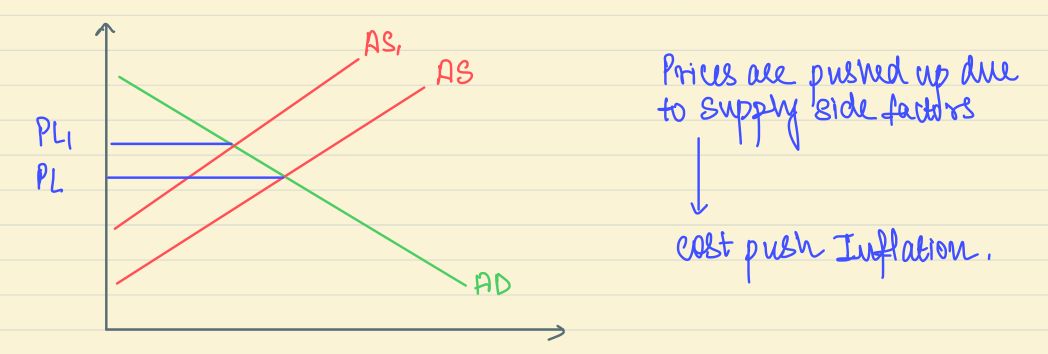 AS₁
AS
PL₁
PL
AD
Prices are pushed up due
to supply side factors
cost push Inflation.